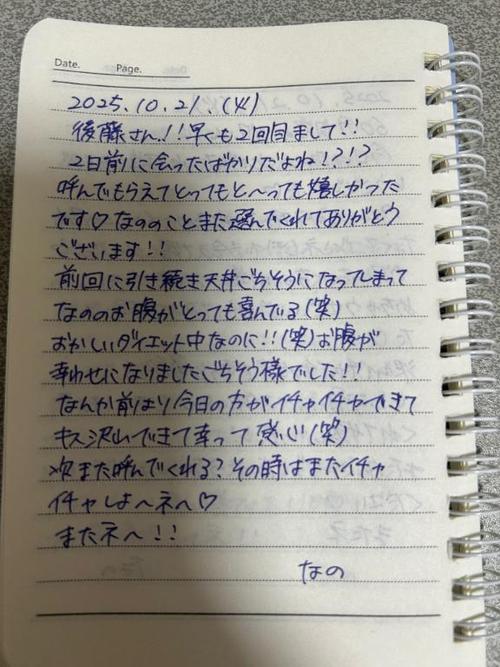 Date.　Page.
2025.10.21.(火)
後藤さん!!早くも2回目まして!!
2日前に会ったばかりだよね!?!?
呼んでもらえてとってもと〜っても嬉しかった
です♡なののことまた選んでくれてありがとう
ございます!!
前回に引き続き天丼ごちそうになってしまって
なののお腹がとっても喜んでいる(笑)
おかしいダイエット中なのに!!(笑)お腹が
幸わせになりましたごちそう様でした!!
なんか前より今日の方がイチャイチャできて
キス沢山できて幸って感じ(笑)
次また呼んでくれる?その時はまたイチャ
イチャしよ〜ネへ♡
またネへ!!
なの